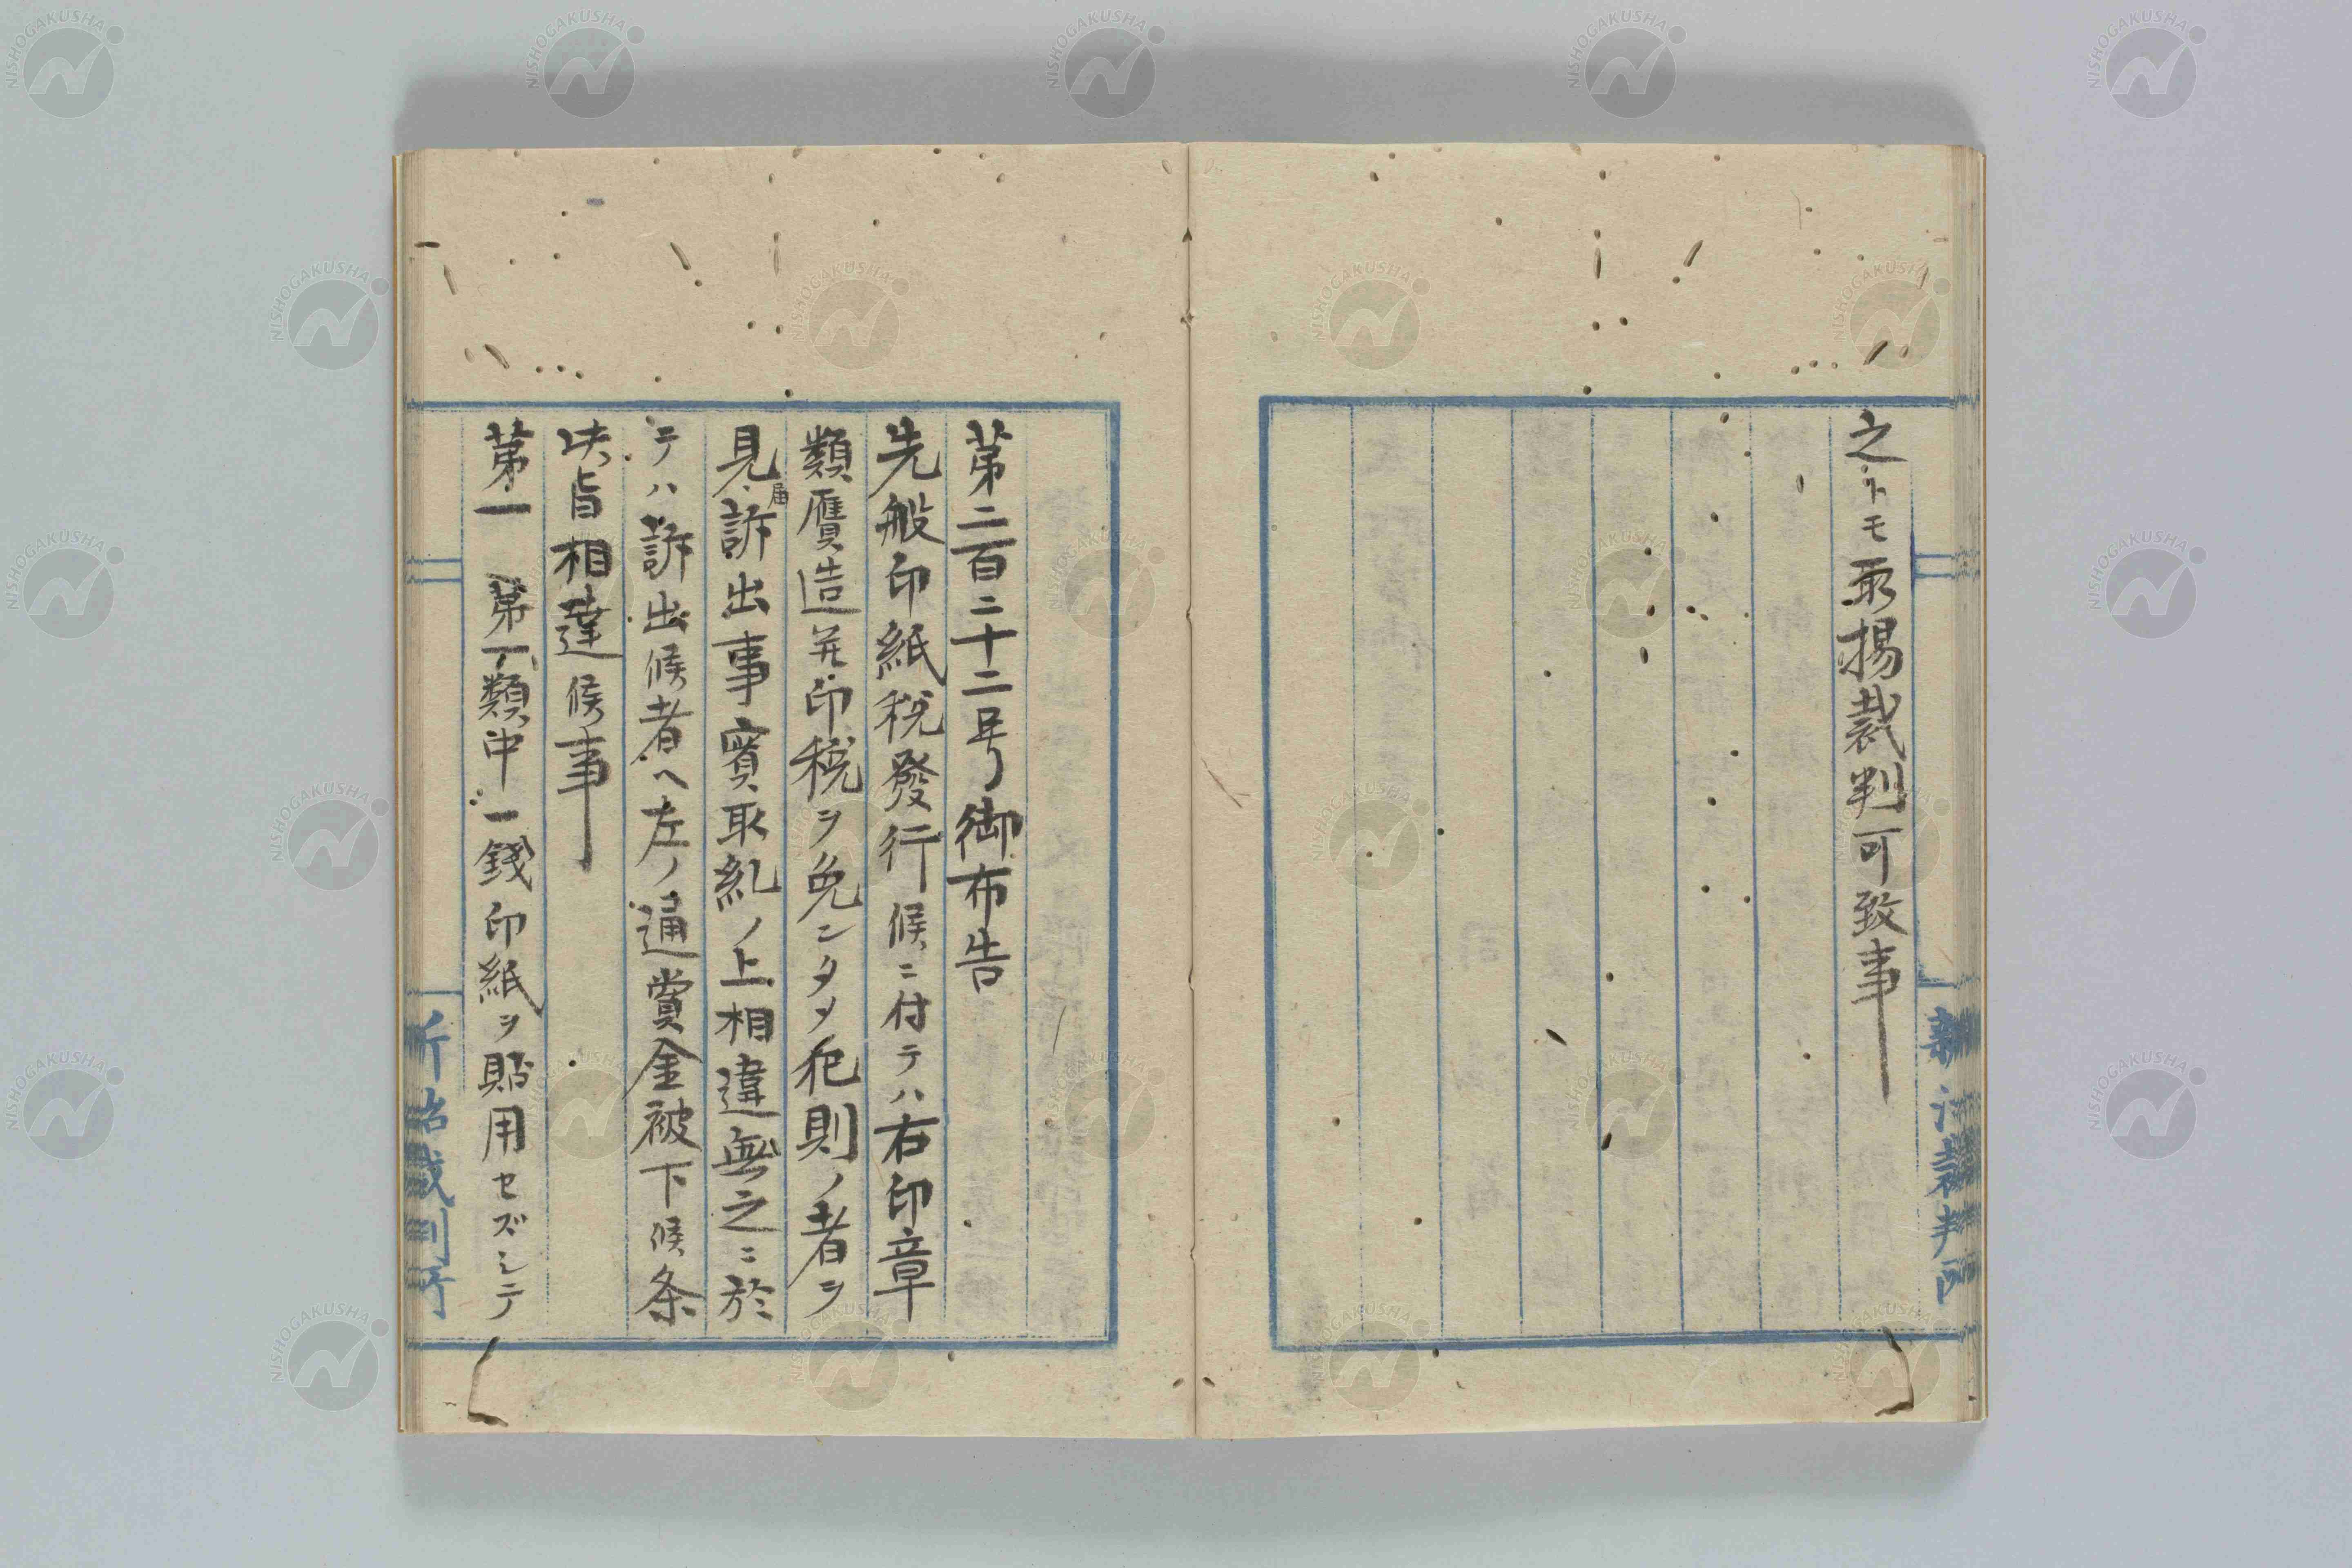 之トモ取揚裁判可致事
新治裁判所
第二百二十二号御布告
先般印紙税發行候ニ付テハ右印章
類贋造并印税ヲ免ンタメ犯則ノ者ヲ
見届訴出事實取糺ノ上相違無之ニ於
テハ訴出候者ヘ左ノ通賞金被下候条
此旨相達候事
第一 第一類中一錢印紙ヲ貼用セズシテ
新治裁判所
NISHOGAKUSHA